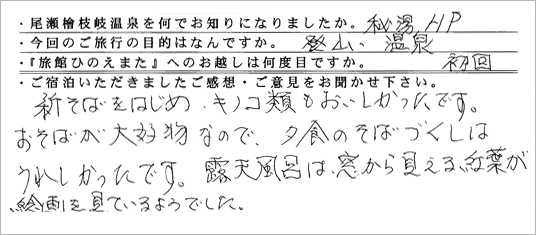 ・尾瀬檜枝岐温泉を何でお知りになりましたか。 秘湯HP
・今回のご旅行の目的はなんですか。 登山、温泉
・『旅館ひのえまた』へのお越しは何度目ですか。 初回
・ご宿泊いただきましたご感想・ご意見をお聞かせ下さい。
新そばをはじめ、キノコ類もおいしかったです。
おそばが大好物なので、夕食のそばづくしは
うれしかったです。露天風呂は、窓から見える紅葉が
絵画を見ているようでした。